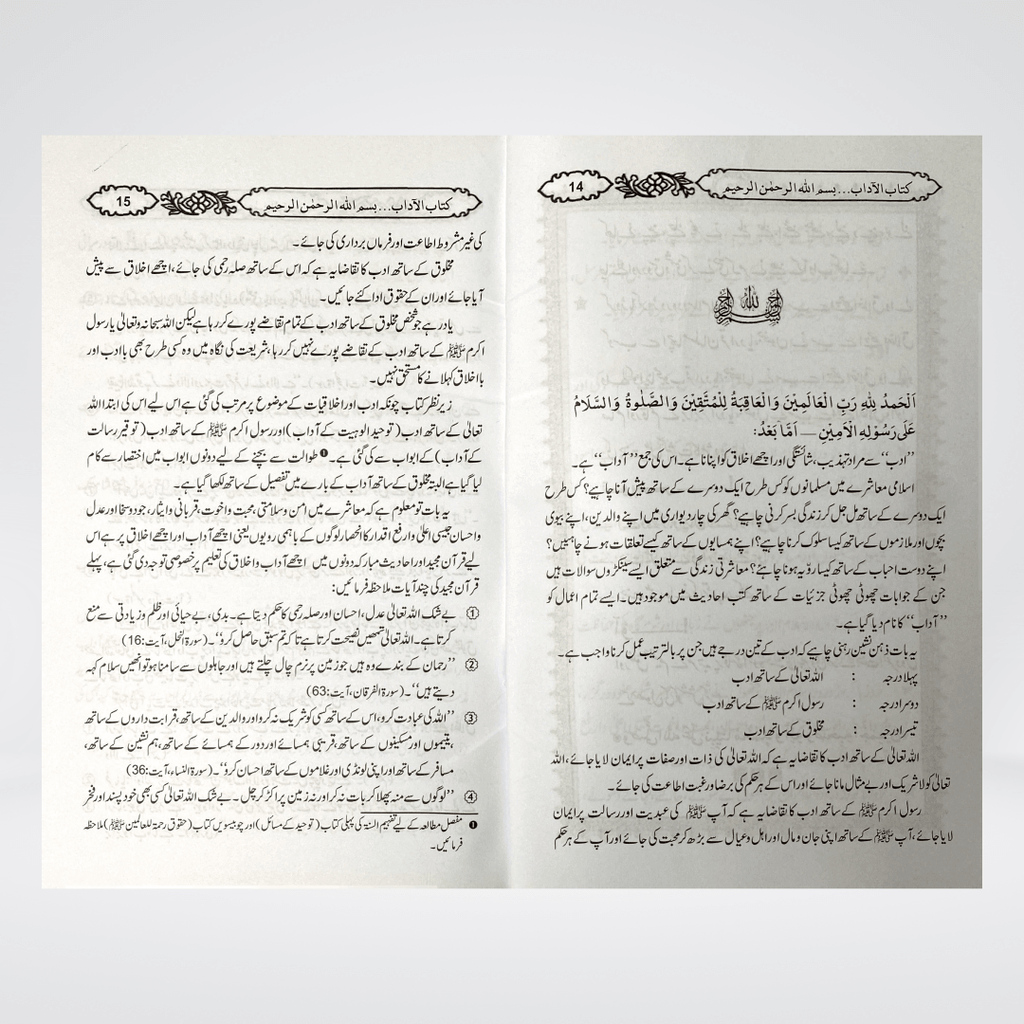 کتاب الآداب...بسم اللہ الرحمٰن الرحیم
14
اَلْحَمْدُ لِلّٰهِ رَبِّ الْعَالَمِيْنَ وَالْعَاقِبَةُ لِلْمُتَّقِيْنَ وَالصَّلٰوةُ وَالسَّلَامُ
عَلٰى رَسُوْلِهِ الْاَمِيْنِ — اَمَّا بَعْدُ:
’’ادب‘‘ سے مراد تہذیب، شائستگی اور اچھے اخلاق کو اپنانا ہے۔ اس کی جمع ’’آداب‘‘ ہے۔
اسلامی معاشرے میں مسلمانوں کو کس طرح ایک دوسرے کے ساتھ پیش آنا چاہیے؟ کس طرح
ایک دوسرے کے ساتھ مل جل کر زندگی بسر کرنی چاہیے؟ گھر کی چار دیواری میں اپنے والدین، اپنے بیوی
بچوں اور ملازموں کے ساتھ کیسا سلوک کرنا چاہیے؟ اپنے ہمسایوں کے ساتھ کیسے تعلقات ہونے چاہئیں؟
اپنے دوست احباب کے ساتھ کیسا رویہ ہونا چاہئے؟ معاشرتی زندگی سے متعلق ایسے سینکڑوں سوالات ہیں
جن کے جوابات چھوٹی چھوٹی جزئیات کے ساتھ کتب احادیث میں موجود ہیں۔ ایسے تمام اعمال کو
’’آداب‘‘ کا نام دیا گیا ہے۔
یہ بات ذہن نشین رہنی چاہیے کہ ادب کے تین درجے ہیں جن پر بالترتیب عمل کرنا واجب ہے۔
پہلا درجہ : اللہ تعالیٰ کے ساتھ ادب
دوسرا درجہ : رسول اکرم ﷺ کے ساتھ ادب
تیسرا درجہ : مخلوق کے ساتھ ادب
اللہ تعالیٰ کے ساتھ ادب کا تقاضا یہ ہے کہ اللہ تعالیٰ کی ذات اور صفات پر ایمان لایا جائے، اللہ
تعالیٰ کو لا شریک اور بے مثال مانا جائے اور اس کے ہر حکم کی برضا ورغبت اطاعت کی جائے۔
رسول اکرم ﷺ کے ساتھ ادب کا تقاضا یہ ہے کہ آپ ﷺ کی عبدیت اور رسالت پر ایمان
لایا جائے، آپ ﷺ کے ساتھ اپنی جان و مال اور اہل و عیال سے بڑھ کر محبت کی جائے اور آپ کے ہر حکم
کتاب الآداب...بسم اللہ الرحمٰن الرحیم
15
کی غیر مشروط اطاعت اور فرماں برداری کی جائے۔
مخلوق کے ساتھ ادب کا تقاضا یہ ہے کہ اس کے ساتھ صلہ رحمی کی جائے، اچھے اخلاق سے پیش
آیا جائے اور ان کے حقوق ادا کئے جائیں۔
یاد رہے جو شخص مخلوق کے ساتھ ادب کے تمام تقاضے پورے کر رہا ہے لیکن اللہ سبحانہ وتعالیٰ یا رسول
اکرم ﷺ کے ساتھ ادب کے تقاضے پورے نہیں کر رہا، شریعت کی نگاہ میں وہ کسی طرح بھی با ادب اور
با اخلاق کہلانے کا مستحق نہیں۔
زیر نظر کتاب چونکہ ادب اور اخلاقیات کے موضوع پر مرتب کی گئی ہے اس لیے اس کی ابتدا اللہ
تعالیٰ کے ساتھ ادب (توحید الوہیت کے آداب) اور رسول اکرم ﷺ کے ساتھ ادب (توقیر رسالت
کے آداب) کے ابواب سے کی گئی ہے۔ ❶ طوالت سے بچنے کے لیے دونوں ابواب میں اختصار سے کام
لیا گیا ہے البتہ مخلوق کے ساتھ آداب کے بارے میں تفصیل کے ساتھ لکھا گیا ہے۔
یہ بات تو معلوم ہے کہ معاشرے میں امن وسلامتی، محبت واخوت، قربانی وایثار، جود وسخا اور عدل
واحسان جیسی اعلیٰ وارفع اقدار کا انحصار لوگوں کے باہمی رویوں یعنی اچھے آداب اور اچھے اخلاق پر ہے اس
لیے قرآن مجید اور احادیث مبارکہ دونوں میں اچھے آداب واخلاق کی تعلیم پر خصوصی توجہ دی گئی ہے، پہلے
قرآن مجید کی چند آیات ملاحظہ فرمائیں:
① بے شک اللہ تعالیٰ عدل، احسان اور صلہ رحمی کا حکم دیتا ہے۔ بدی، بے حیائی اور ظلم وزیادتی سے منع
کرتا ہے۔ اللہ تعالیٰ تمہیں نصیحت کرتا ہے تاکہ تم سبق حاصل کرو‘‘۔ (سورۃ النحل، آیت:16)
② ’’رحمان کے بندے وہ ہیں جو زمین پر نرم چال چلتے ہیں اور جاہلوں سے سامنا ہو تو انھیں سلام کہہ
دیتے ہیں‘‘۔ (سورۃ الفرقان، آیت:63)
③ ’’اللہ کی عبادت کرو، اس کے ساتھ کسی کو شریک نہ کرو اور والدین کے ساتھ، قرابت داروں کے ساتھ
، یتیموں اور مسکینوں کے ساتھ، قریبی ہمسائے اور دور کے ہمسائے کے ساتھ، ہم نشین کے ساتھ،
مسافر کے ساتھ اور اپنی لونڈی اور غلاموں کے ساتھ احسان کرو‘‘۔ (سورۃ النساء، آیت:36)
④ ’’لوگوں سے منہ پھلا کر بات نہ کر اور نہ زمین پر اکڑ کر چل۔ بے شک اللہ تعالیٰ کسی بھی خود پسند اور فخر
❶ مفصل مطالعہ کے لیے تفہیم السنۃ کی پہلی کتاب (توحید کے مسائل) اور چوبیسویں کتاب (حقوق رحمۃ للعالمین ﷺ) ملاحظہ
فرمائیں۔